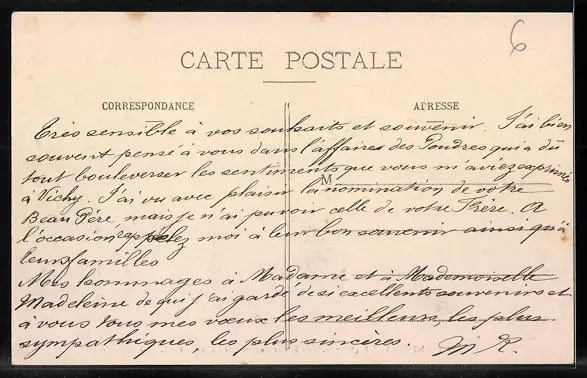 6
CARTE POSTALE
CORRESPONDANCE
ADRESSE
Très sensible à vos souhaits et souvenir. J'ai bien
souvent pensé à vous dans l'affaire des Poudres qui a dû
tout bouleverser les sentiments que vous m'aviez exprimés
à Vichy. J'ai vu avec plaisir la nomination de votre
M
Beau Père mais je n'ai pu voir celle de votre Frère. A
l'occasion rappelez moi à leur bon souvenir ainsi qu'à
leurs familles
Mes hommages à Madame et à Mademoiselle
Madeleine de qui j'ai gardé de si excellents souvenirs et
à vous tous mes vœux les meilleurs, les plus
sympathiques, les plus sincères.